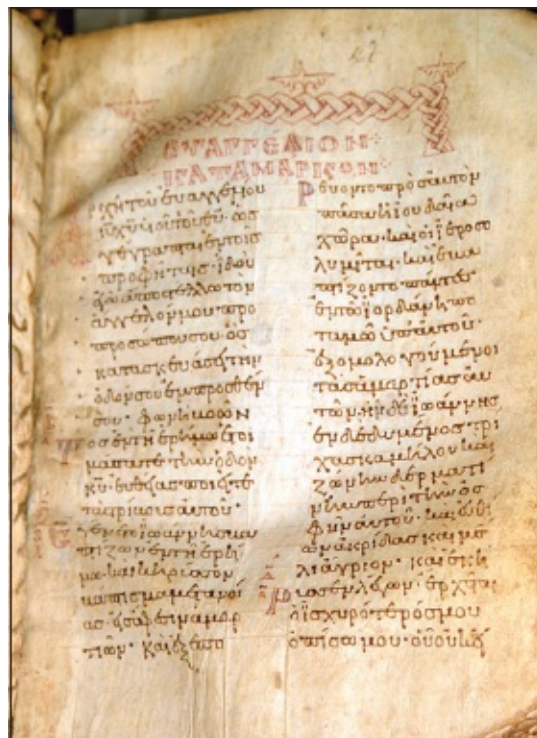 ΕΥΑΓΓΕΛΙΟΝ
ΚΑΤΑ ΜΑΡΚΟΝ
Ἀρχὴ τοῦ εὐαγγελίου
ἰυ χυ υἱοῦ τοῦ θυ· ὡς
γέγραπται ἐν τοῖς
προφήταις· ἰδοὺ
ἐγὼ ἀποστέλλω τὸν
ἄγγελόν μου πρὸ
προσώπου σου· ὃς
κατασκευάσει τὴν
ὁδόν σου ἔμπροσθέν
σου· φωνὴ βοῶν
τος ἐν τῇ ἐρήμω ἑτοι
μάσατε τὴν ὁδὸν
κυ· εὐθείας ποιεῖτε
τὰς τρίβους αὐτοῦ·
Ἐγένετο ἰωάννης βα
πτίζων ἐν τῇ ἐρή
μω· καὶ κηρύσσων
βάπτισμα μετανοί
ας εἰς ἄφεσιν ἁμαρ
τιῶν· καὶ ἐξεπο
ρεύοντο πρὸς αὐτὸν
πᾶσα ἡ ἰουδαία
χώρα· καὶ οἱ ἱεροσο
λυμῖται· καὶ ἐβα
πτίζοντο πάντες
ἐν τῶ ἰορδάνη πο
ταμῶ ὑπ' αὐτοῦ·
ἐξομολογούμενοι
τὰς ἁμαρτίας αὐ
τῶν· ἦν δὲ ἰωάννης
ἐνδεδυμένος τρί
χας καμήλου καὶ
ζώνην δερματί
νην περὶ τὴν ὀσ
φὺν αὐτοῦ· καὶ ἐσθί
ων ἀκρίδας καὶ μέ
λι ἄγριον· καὶ ἐκή
ρυσσεν λέγων· ἔρχεται
ὁ ἰσχυρότερός μου
ὀπίσω μου· οὗ οὐκ εἰ